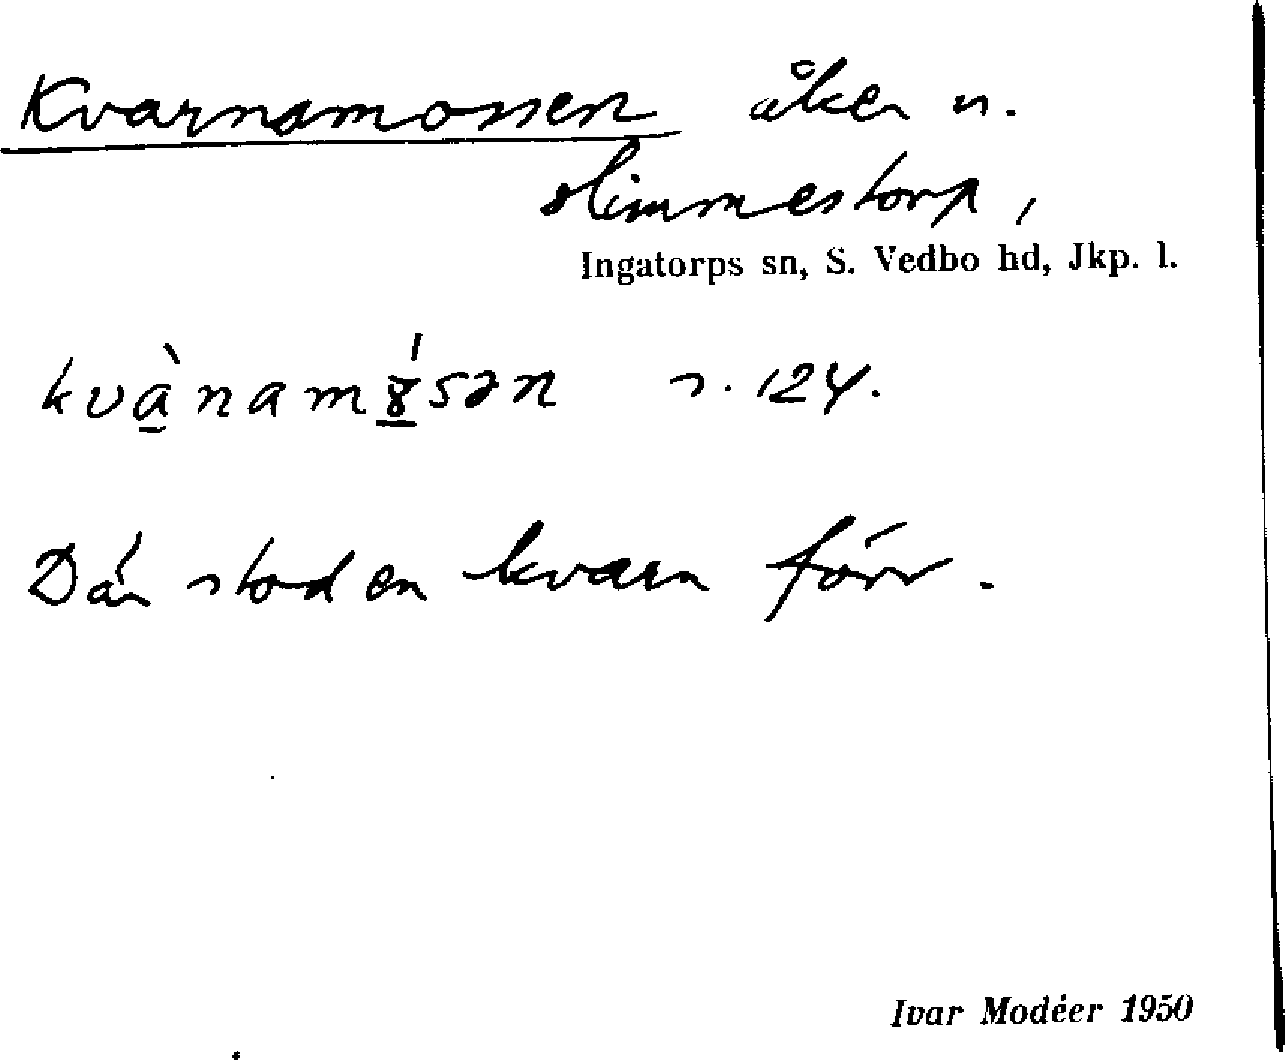 Kvarnamossen åker u.
Slimmestorp,
Ingatorps sn, S. Vedbo hd, Jkp. l.
s. 124.
Där stod en kvarn förr.
Ivar Modéer 1950